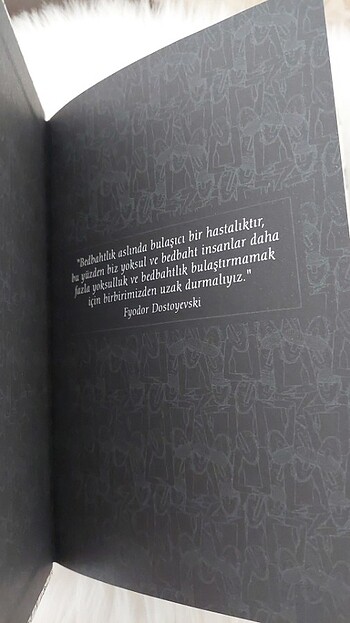 "Bedbahtlık aslında bulaşıcı bir hastalıktır,
bu yüzden biz yoksul ve bedbaht insanlar daha
fazla yoksulluk ve bedbahtlık bulaştırmamak
için birbirimizden uzak durmalıyız."
Fyodor Dostoyevski